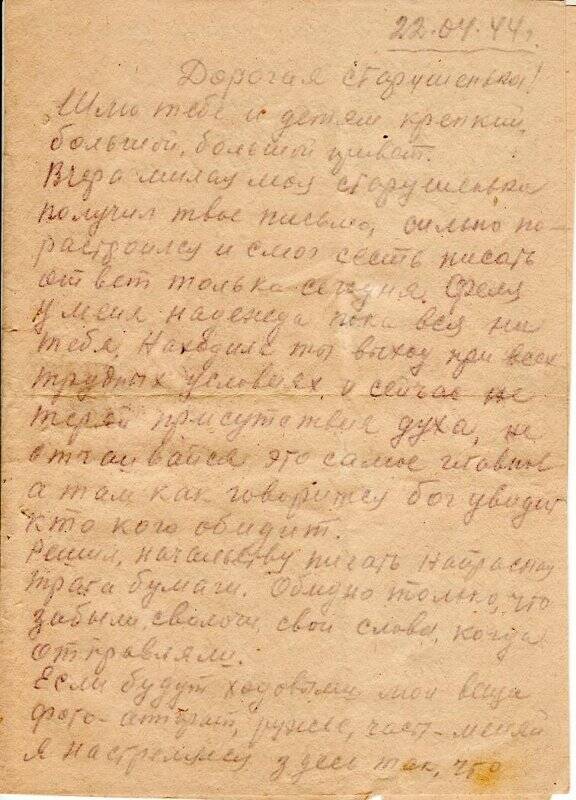 22.04.44.
Дорогая старушенька!
Шлю тебе и детям крепкий,
большой, большой привет.
Вчера милая моя старушенька
получил твое письмо, сильно по-
растроился и смог сесть писать
ответ только сегодня. Феля
у меня надежда пока вся на
тебя. Находила ты выход при всех
трудных условиях и сейчас не
теряй присутствия духа, не
отчаивайся это самое главное
а там как говорится бог увидит
кто кого обидит.
Решил, начальству писать напрасная
трата бумаги. Обидно только, что
забыли, сволочи, свои слова, когда
отправляли.
Если будут ходовыми мои вещи
фото-аппарат, ружье, част-меняй
я настреляюсь здесь так, что